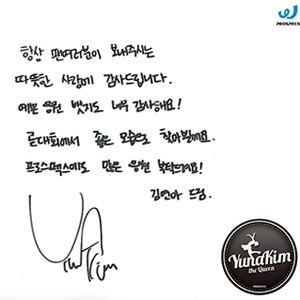 PROSPECS
항상 팬여러분이 보내주시는
따뜻한 사랑에 감사드립니다.
예쁜 응원 뱃지도 너무 감사해요!
곧대회에서 좋은 모습으로 찾아뵐께요.
프로스펙스에도 많은 응원 부탁드려요!
김연아 드림.
YunaKim
YunaKim
the Queen
PROSPECS